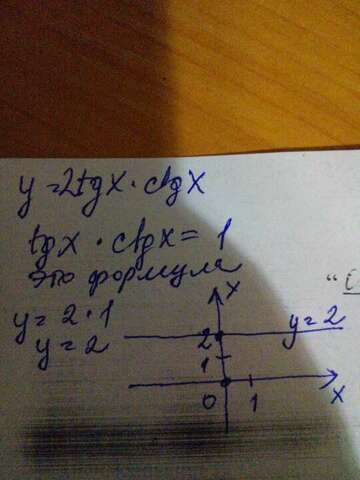 y=2tgx·ctgx
tgx·ctgx=1
это формула
y=2·1
y=2
x
y=2
2
1
0
1
x
"